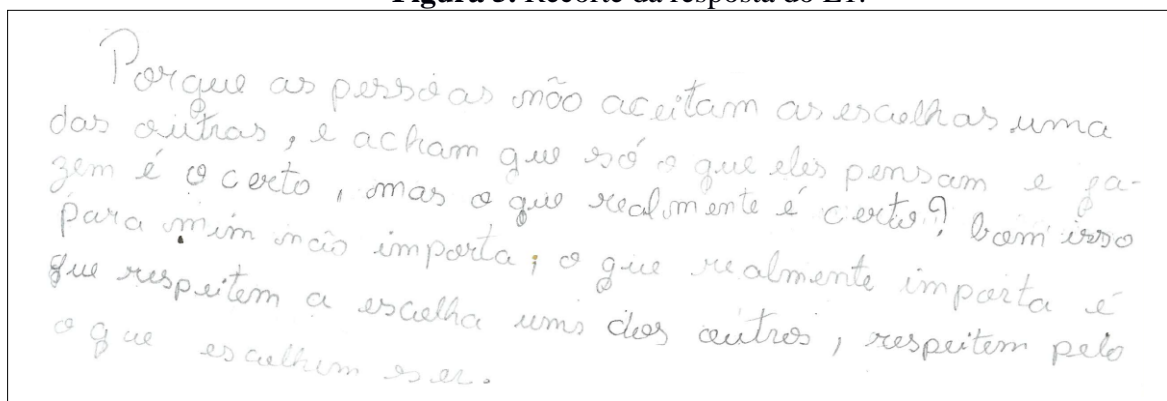 Figura 3. Recorte da resposta do E1.
Porque as pessoas não aceitam as escolhas uma
das outras, e acham que só o que eles pensam e fa-
zem é o certo, mas o que realmente é certo? bom isso
para mim não importa; o que realmente importa é
que respeitem a escolha uns dos outros, respeitem pelo
o que escolhem ser.